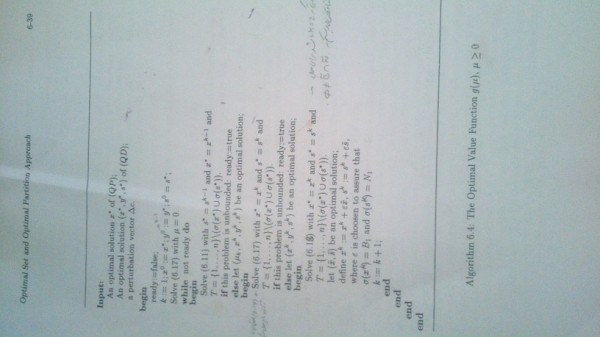 Optimal Set and Optimal Partition Approach 6-39
Input:
An optimal solution x* of (QP);
An optimal solution (x*, y*, s*) of (QD);
a perturbation vector Δc.
begin
ready:=false;
k := 1; x⁰ := x*; y⁰ := y*; s⁰ = s*;
Solve (6.17) with μ = 0;
while not ready do
begin
Solve (6.11) with s* = s^{k-1} and x* = x^{k-1} and
T = {1,...,n}\(σ(x*) ∪ σ(s*));
if this problem is unbounded: ready:=true
else let (μ_k, x^k, y^k, s^k) be an optimal solution;
begin
Solve (6.17) with x* = x^k and s* = s^k and
T = {1,...,n}\(σ(x*) ∪ σ(s*))
if this problem is unbounded: ready:=true
else let (x^k, y^k, s^k) be an optimal solution;
begin
Solve (6.18) with x* = x^k and s* = s^k and
T = {1,...,n}\(σ(x*) ∪ σ(s*));
let (x̄, s̄) be an optimal solution;
define x^k := x^k + εx̄, s^k := s^k + εs̄,
where ε is choosen to assure that
σ(x^k) = B; and σ(s^k) = N;
k := k + 1;
end
end
end
end
Algorithm 6.4: The Optimal Value Function g(μ), μ ≥ 0